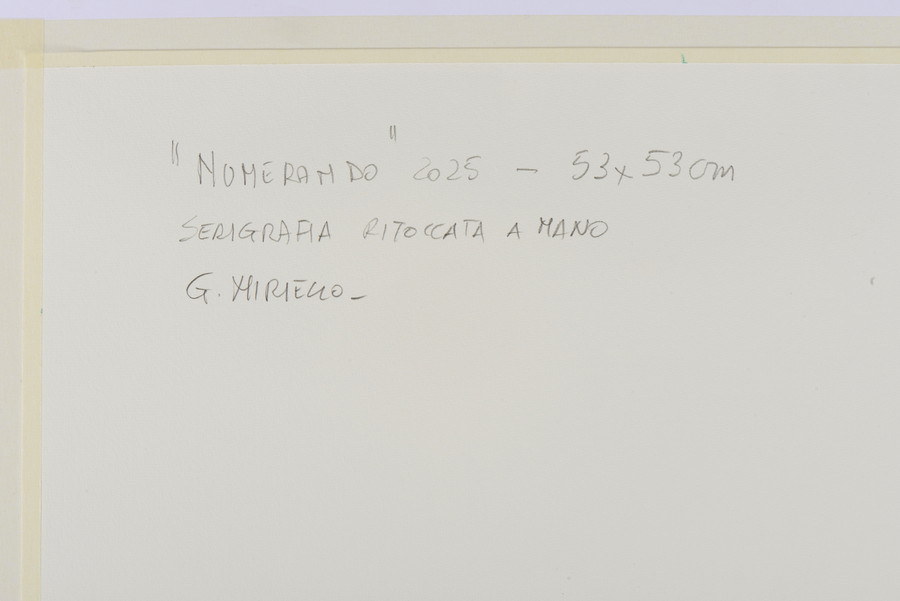 "NUMERANDO" 2025 - 53x53cm
SERIGRAFIA RITOCCATA A MANO
G. MIRIELLO_